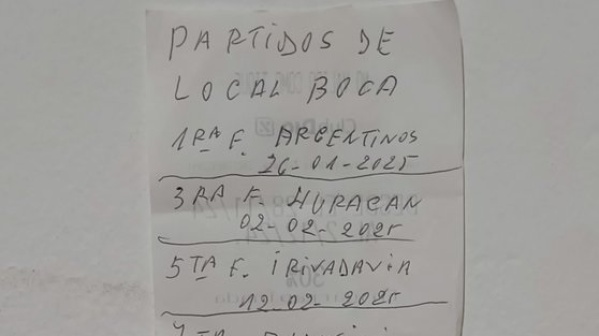 PARTIDOS DE
LOCAL BOCA
1RA F. ARGENTINOS
26-01-2025
3RA F. HURACAN
02-02-2025
5TA F. IRIVADAVIA
12-02-2025